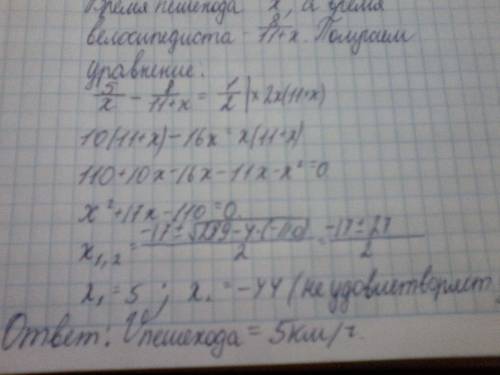 Время пешехода x, а время
велосипедиста - 8/11+x. Получаем
уравнение.
5/x - 8/11+x = 1/2 | × 2x(11+x)
10(11+x) - 16x = x(11+x)
110+10x-16x-11x-x²=0
x²+17x-110=0
x₁,₂ = -17±√289-4·(-110)/2 = -17±27/2
x₁=5 ; x = -44 (не удовлетворяет
Ответ: Vпешехода = 5км/ч.